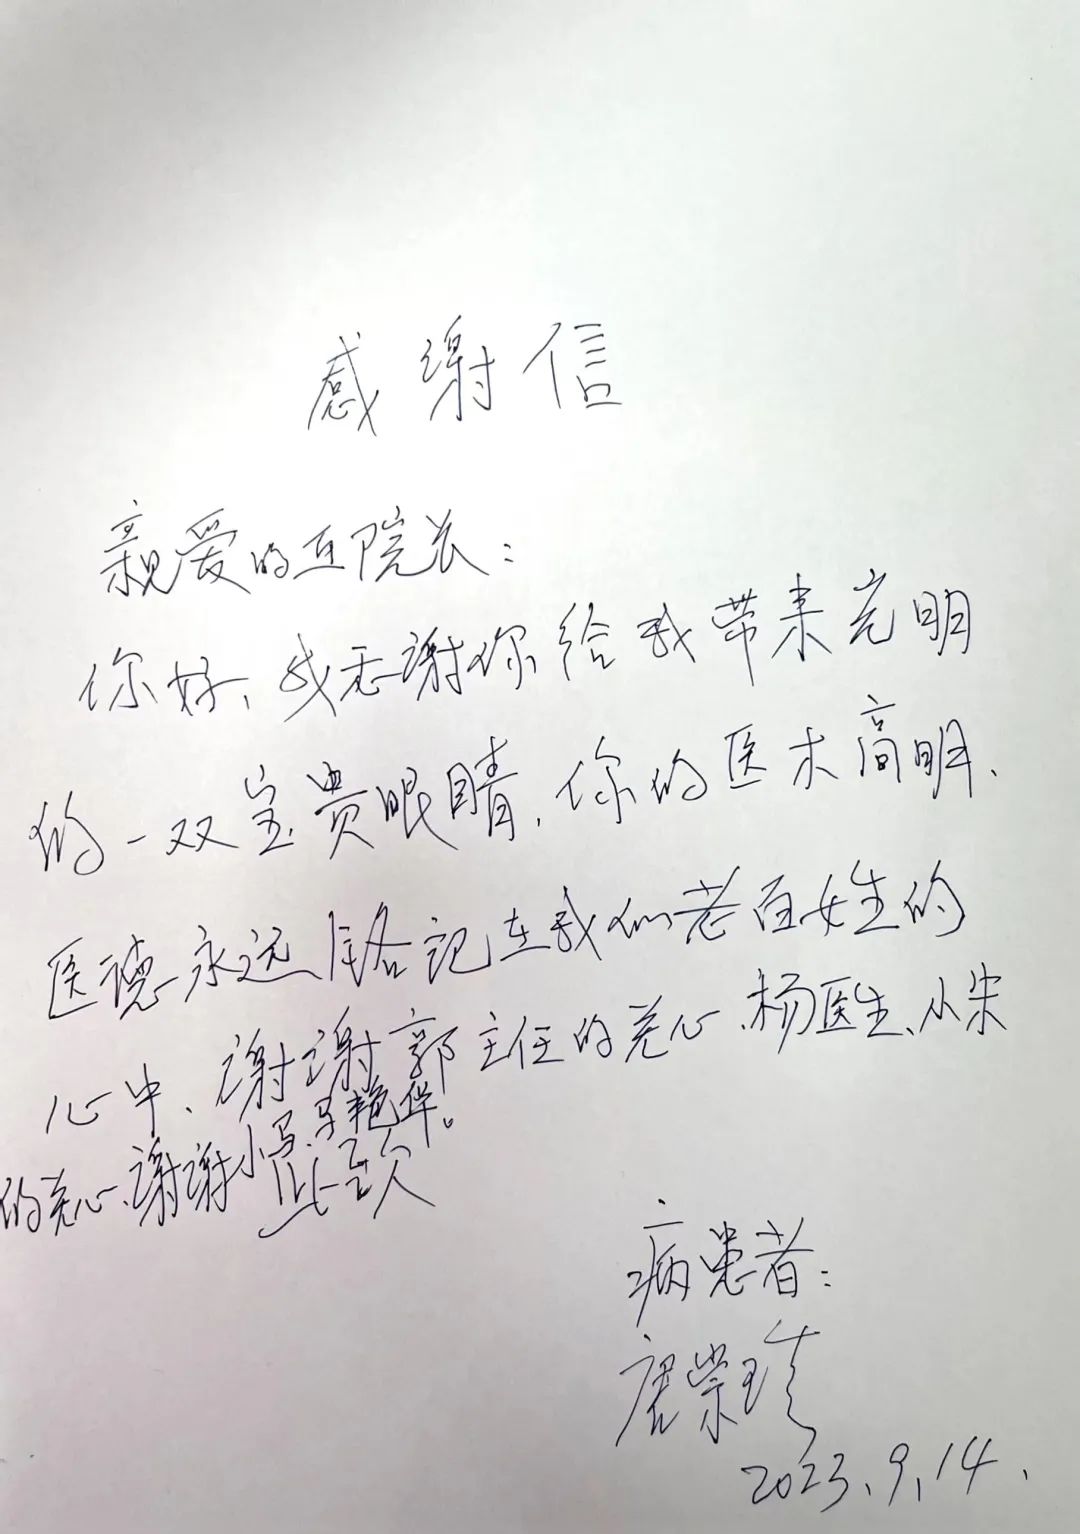 感谢信
亲爱的王院长：
你好、我感谢你给我带来光明
的一双宝贵眼睛，你的医术高明、
医德永远铭记在我们老百姓的
心中、谢谢郭主任的关心、杨医生、小宋
的关心、谢谢小马、马艳华。
此致
病患者：
唐荣
2023、9、14、